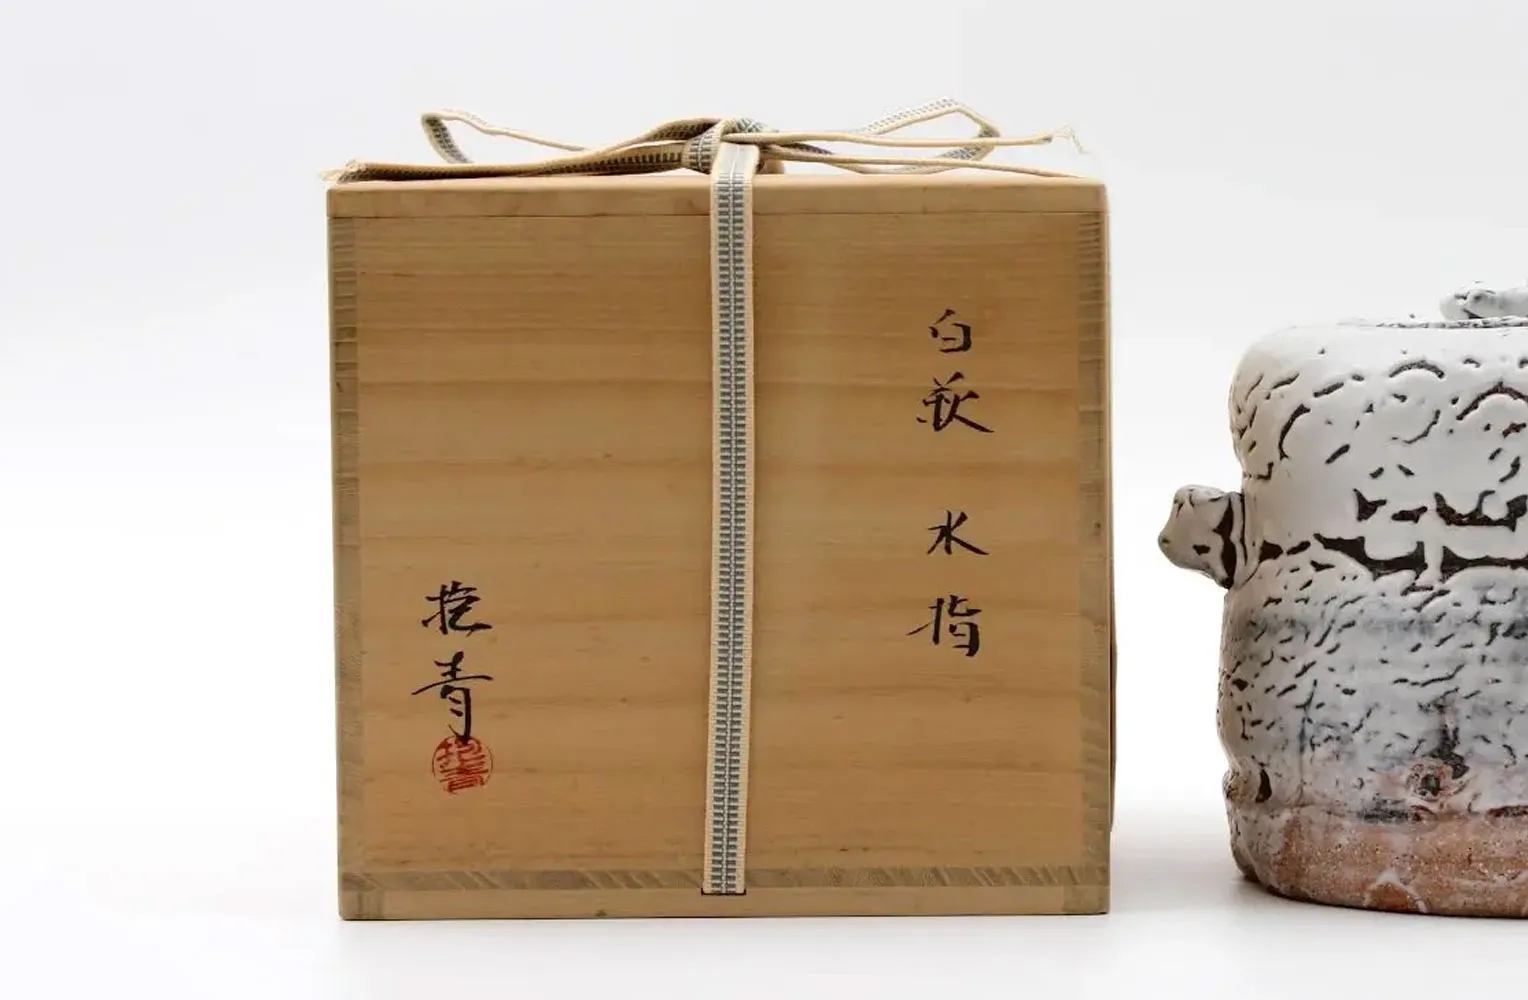 白萩 水指
抱青